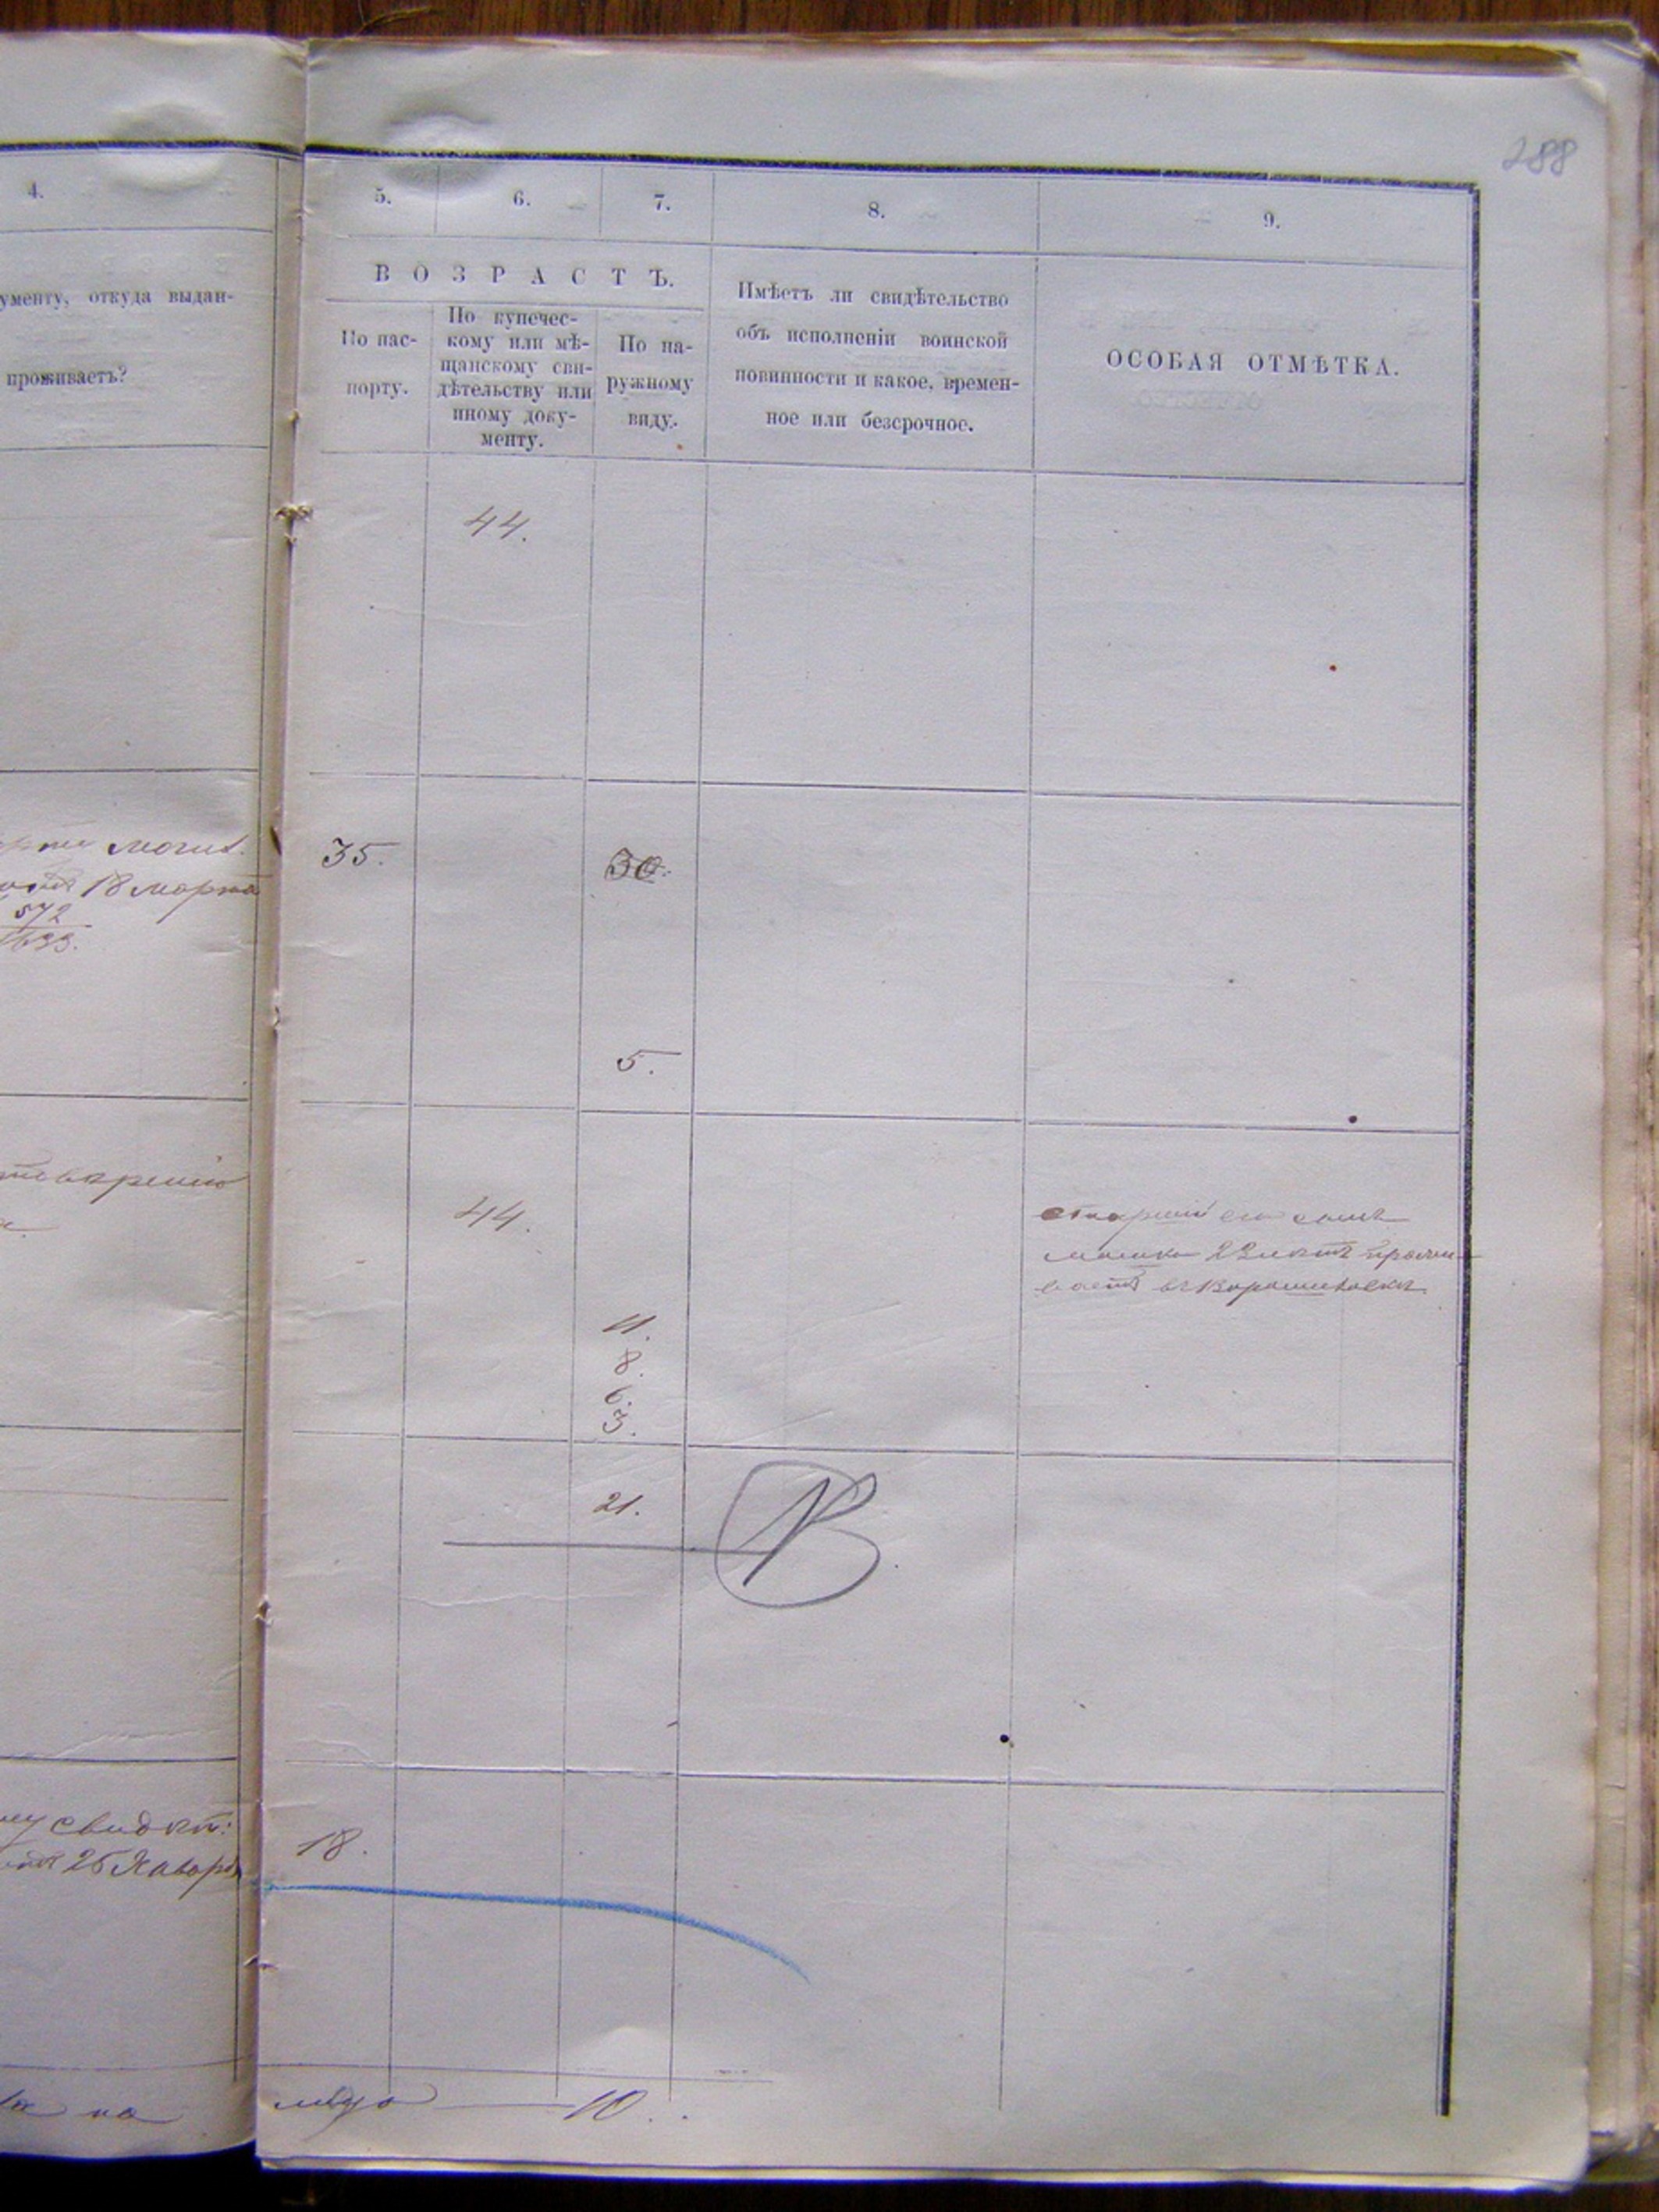 288
4.
5.
6.
7.
8.
9.
ументу, откуда выдан-
проживаетъ?
ВОЗРАСТЪ.
По пас-
порту.
По купечес-
кому или мѣ-
щанскому сви-
дѣтельству или
иному доку-
менту.
По на-
ружному
виду.
Имѣетъ ли свидѣтельство
объ исполненіи воинской
повинности и какое, времен-
ное или безсрочное.
ОСОБАЯ ОТМѢТКА.
44.
18 марта
572
35.
30.
5.
44.
старшій его сынъ
22 лѣтъ прожи-
ваетъ въ Ворошиловкѣ
11.
8.
6.
3.
21.
свидѣт:
25 Января
18.
на
лицо — 10.